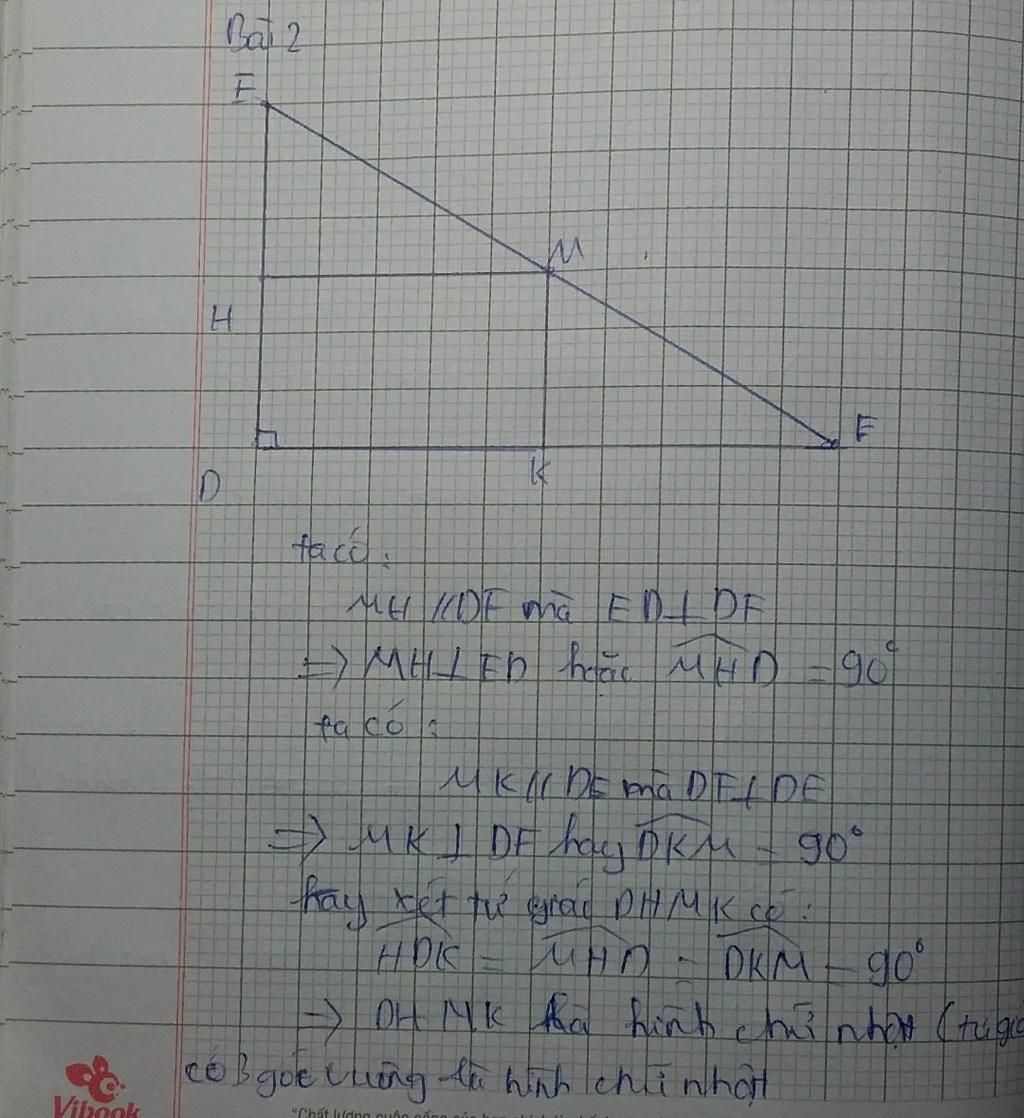 Bài 2
E
M
H
F
D
K
ta có:
MH // DF mà ED ⊥ DF
=> MH ⊥ ED hoặc MHD = 90°
ta có:
MK // DE mà DF ⊥ DE
=> MK ⊥ DF hay DKM = 90°
hay xét tứ giác DHMK có:
HDK = MHD = DKM = 90°
=> DHMK là hình chữ nhật (tứ giá
có 3 góc vuông là hình chữ nhật
Vibook